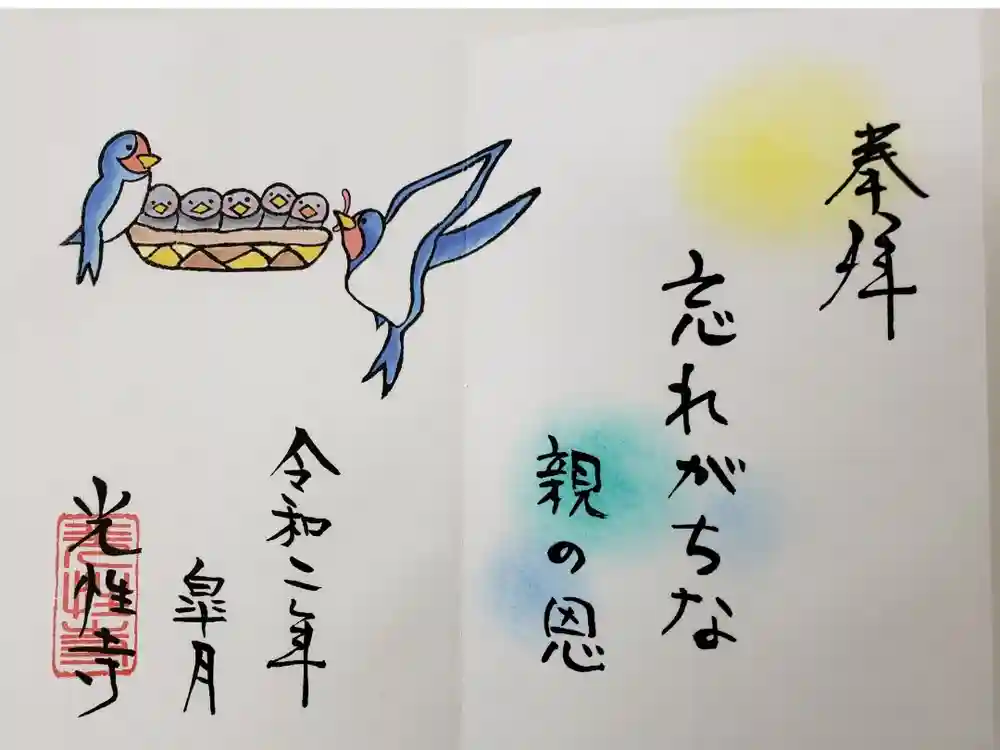 奉拝
忘れがちな
親の恩
令和二年
皐月
光性寺